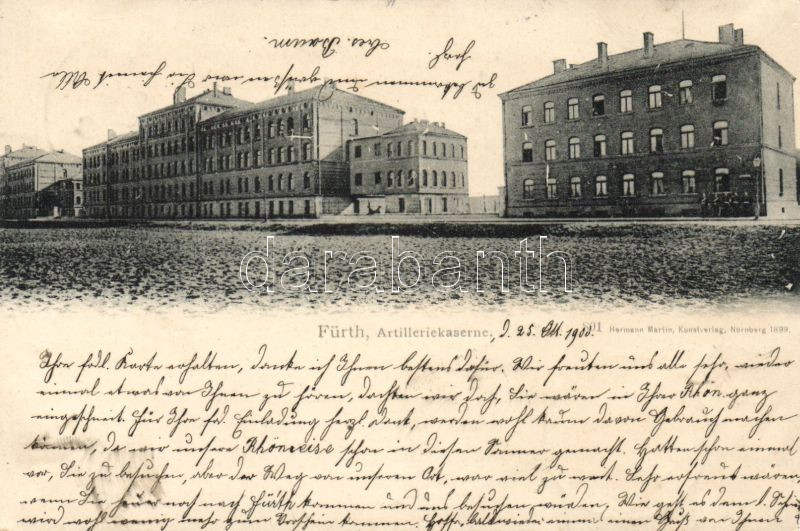 Fürth, Artilleriekaserne. d. 25. Okt. 1900. 901 Hermann Martin, Kunstverlag, Nürnberg 1899.
Ihre frdl. Karte erhalten, danke ich Ihnen bestens dafür. Wir freuten uns alle sehr, wieder
einmal etwas von Ihnen zu hören, dachten wir doch, Sie wären in Ihrer Rhön ganz
eingeschneit. Für Ihre frd. Einladung herzl. Dank, werden wohl kaum davon Gebrauch machen
können, da wir unsere Rhönreise schon in diesem Sommer gemacht. Hatten schon einmal
vor, Sie zu besuchen, aber der Weg von unserem Ort, war viel zu weit. Sehr erfreut wären,
wenn Sie nach Fürth kommen und uns besuchen würden. Wie geht es dem
wird wohl wenig mehr zum
zu bekommen u. grüssen wir Sie hiermit Alle
herzl.
Ches. Baum.
darabanth